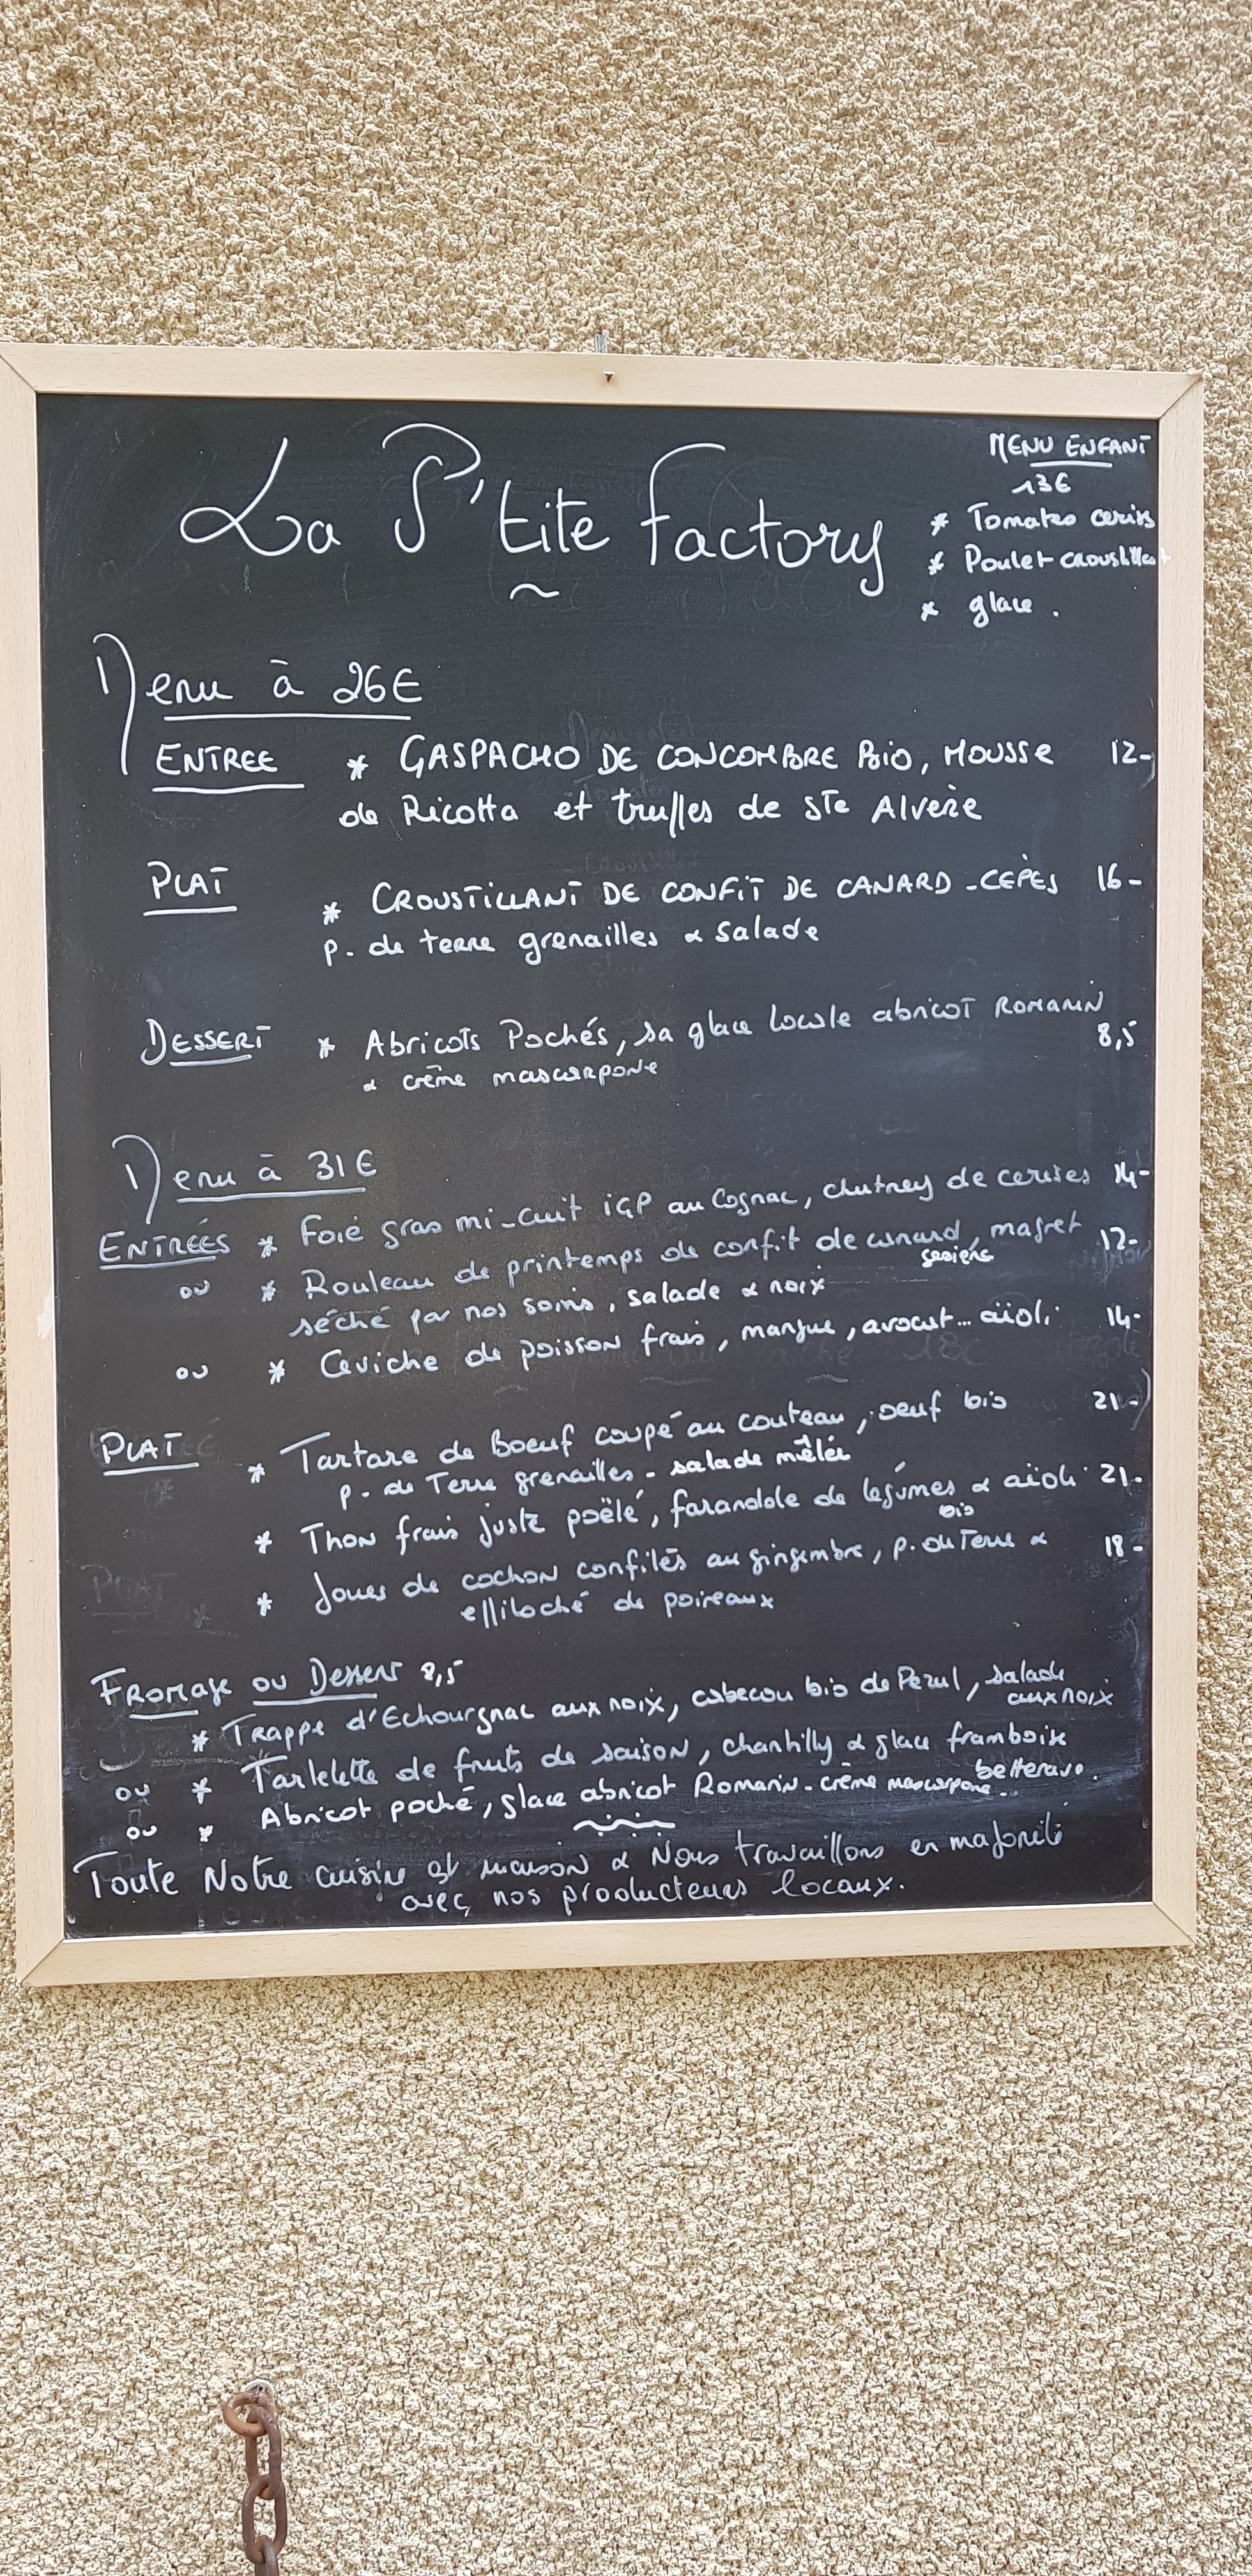 La P'tite factory
MENU ENFANT
13€
* Tomates cerises
* Poulet croustillant
* glace .
Menu à 26€
ENTREE * GASPACHO DE CONCOMBRE BiO, MOUSSE 12-
de Ricotta et truffes de STe Alvère
PLAT * CROUSTILLANT DE CONFiT DE CANARD - CÈPES 16-
p. de terre grenailles & salade
DESSERT * Abricots Pochés, sa glace locale abricot ROMARIN 8,5
& crème mascarpone
Menu à 31€
ENTRÉES * Foie gras mi-cuit iGP au Cognac, chutney de cerises 14-
ou * Rouleau de printemps de confit de canard, magret 12-
séché par nos soins, salade & noix
ou * Ceviche de poisson frais, mangue, avocat... aïoli 14-
PLAT * Tartare de Boeuf coupé au couteau, oeuf bio 21-
p. de Terre grenailles - salade mêlée
* Thon frais juste poêlé, farandole de légumes & aïoli 21-
bio
* Joues de cochon confites au gingembre, p. de Terre & 18-
effiloché de poireaux
Fromage ou Dessert 8,5
* Trappe d'Echourgnac aux noix, cabecou bio de Pezul, salade
aux noix
ou * Tartelette de fruits de saison, chantilly & glace framboise
betterave.
ou * Abricot poché, glace abricot Romarin - crème mascarpone..
Toute Notre cuisine est maison & Nous travaillons en majorité
avec nos producteurs locaux.